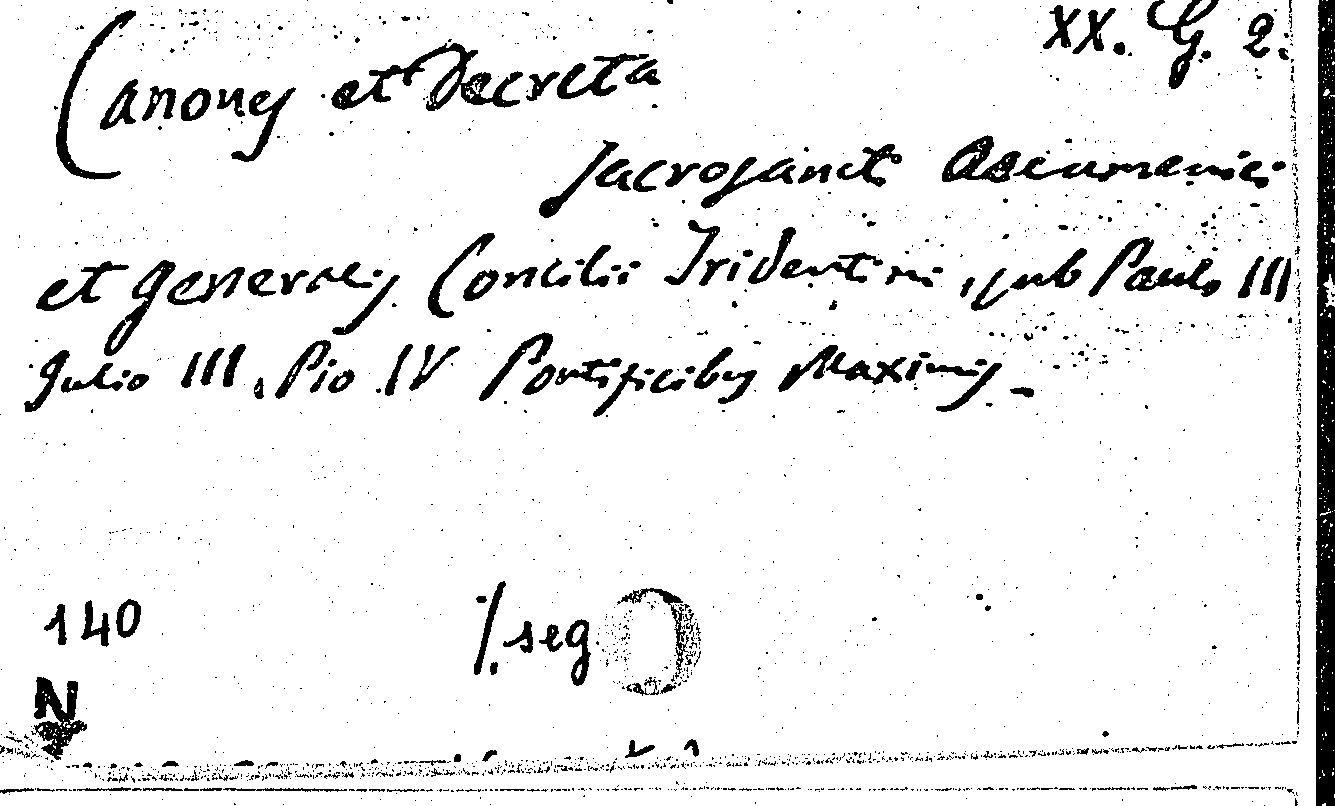 XX. G. 2.
Canones et Decreta
Sacrosancti Oecumenici
et Generalis Concilii Tridentini, sub Paulo III
Julio III, Pio IV Pontificibus Maximis
140
./. seg
N